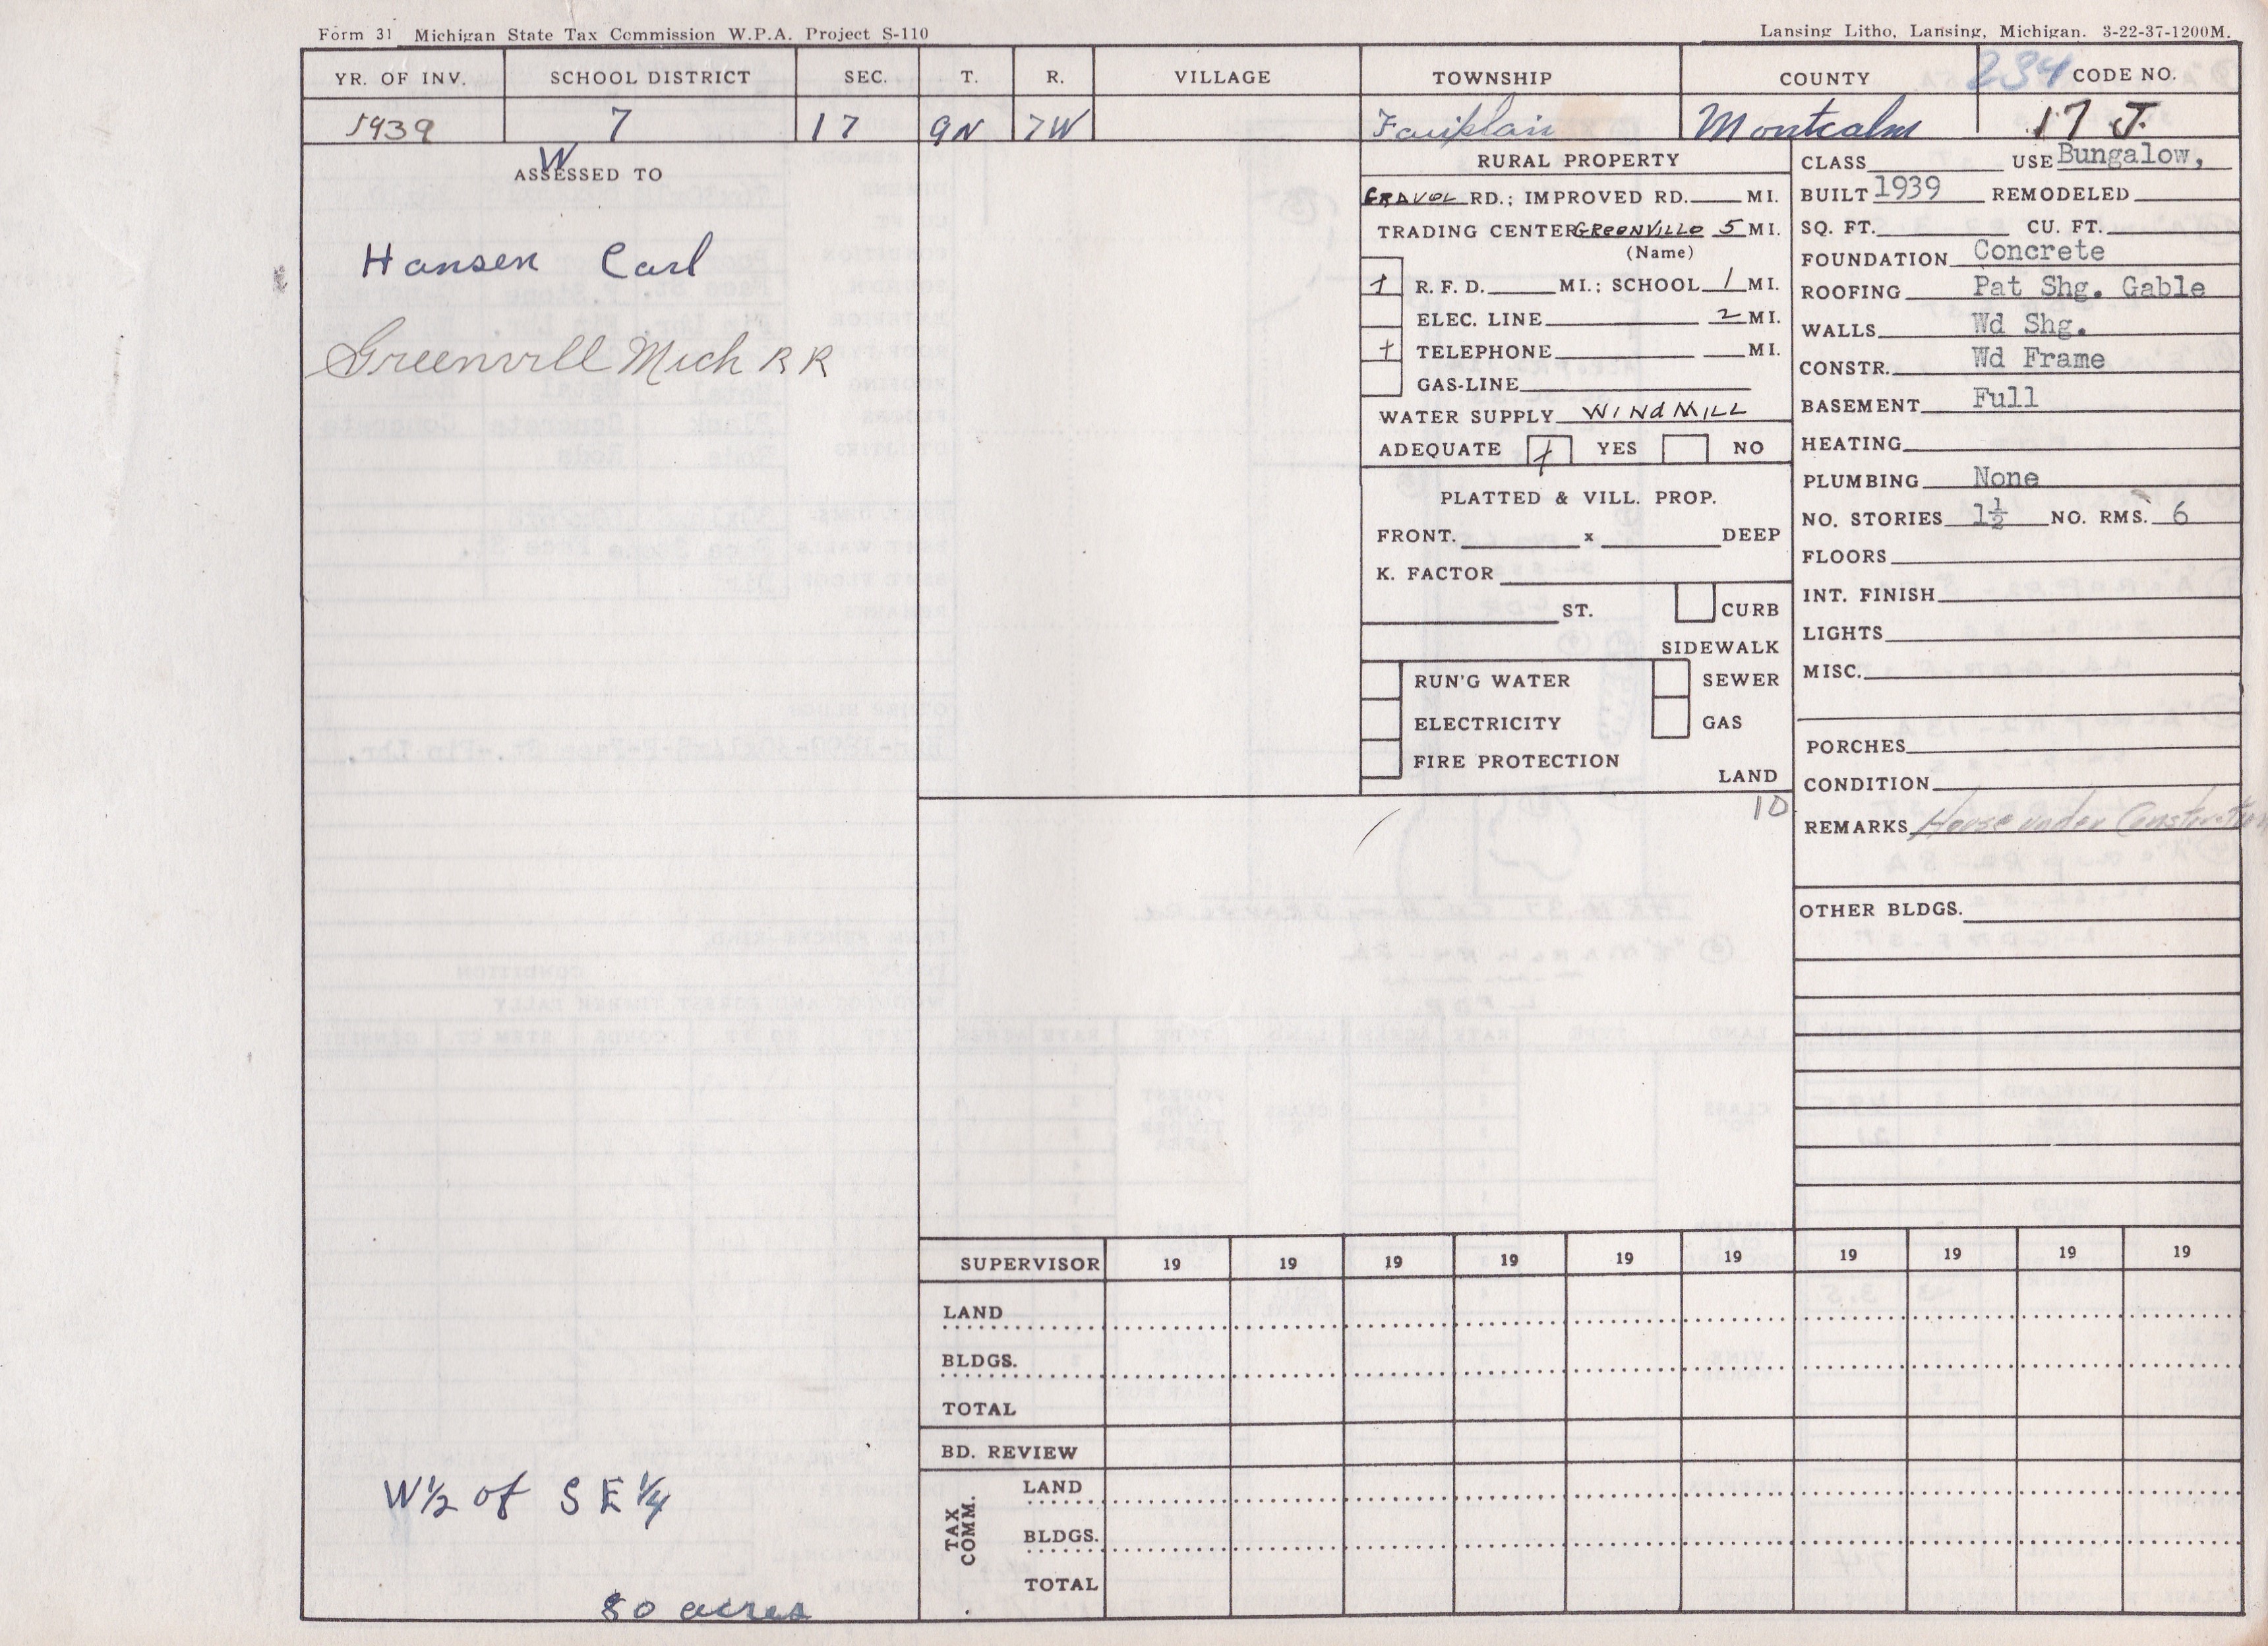 Form 31 Michigan State Tax Commission W.P.A. Project S-110
Lansing Litho, Lansing, Michigan. 3-22-37-1200M.
YR. OF INV. SCHOOL DISTRICT SEC. T. R. VILLAGE TOWNSHIP COUNTY 234 CODE NO.
1939 7 17 9N 7W Fairplain Montcalm 17 J.
W
ASSESSED TO
Hansen Carl
Greenvill Mich R R
W 1/2 of S E 1/4
80 acres
RURAL PROPERTY
GRAVOL RD.; IMPROVED RD. MI.
TRADING CENTER GREENVILLE 5 MI.
(Name)
+ R. F. D. MI.: SCHOOL 1 MI.
ELEC. LINE 2 MI.
+ TELEPHONE MI.
GAS-LINE
WATER SUPPLY WINDMILL
ADEQUATE + YES NO
PLATTED & VILL. PROP.
FRONT. x DEEP
K. FACTOR
ST. CURB
SIDEWALK
RUN'G WATER SEWER
ELECTRICITY GAS
FIRE PROTECTION
LAND
10
CLASS USE Bungalow,
BUILT 1939 REMODELED
SQ. FT. CU. FT.
FOUNDATION Concrete
ROOFING Pat Shg. Gable
WALLS Wd Shg.
CONSTR. Wd Frame
BASEMENT Full
HEATING
PLUMBING None
NO. STORIES 1½ NO. RMS. 6
FLOORS
INT. FINISH
LIGHTS
MISC.
PORCHES
CONDITION
REMARKS House under Construction
OTHER BLDGS.
SUPERVISOR 19 19 19 19 19 19 19 19 19 19
LAND
BLDGS.
TOTAL
BD. REVIEW
TAX COMM.
LAND
BLDGS.
TOTAL